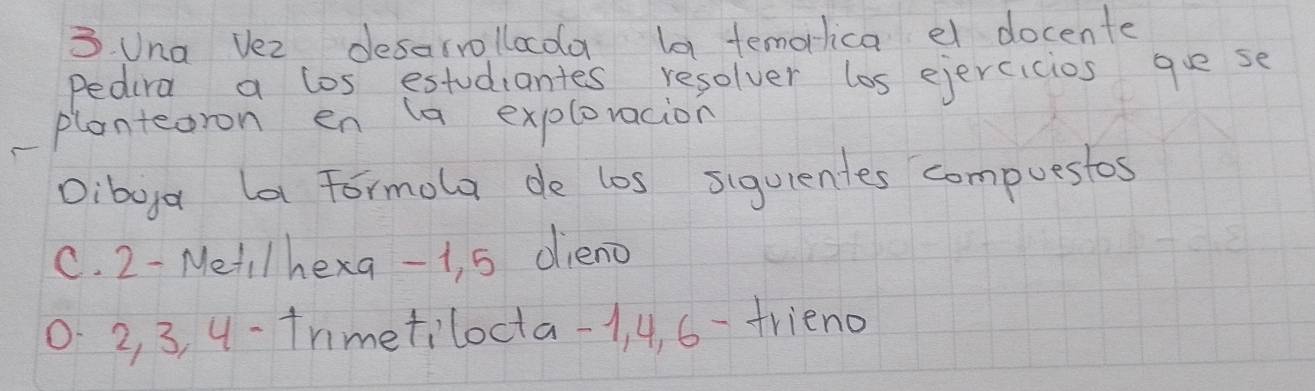 3. Una vez desarrollacda la tematica el docente
Pedira a los estudiantes resolver los ejercicios que se
plantearon en la exploracion
- Dibuja la Fórmola de los siguientes compuestos
C. 2 - Metil hexa - 1,5 dieno
D. 2, 3, 4 - trimetilocta - 1,4, 6 - trieno